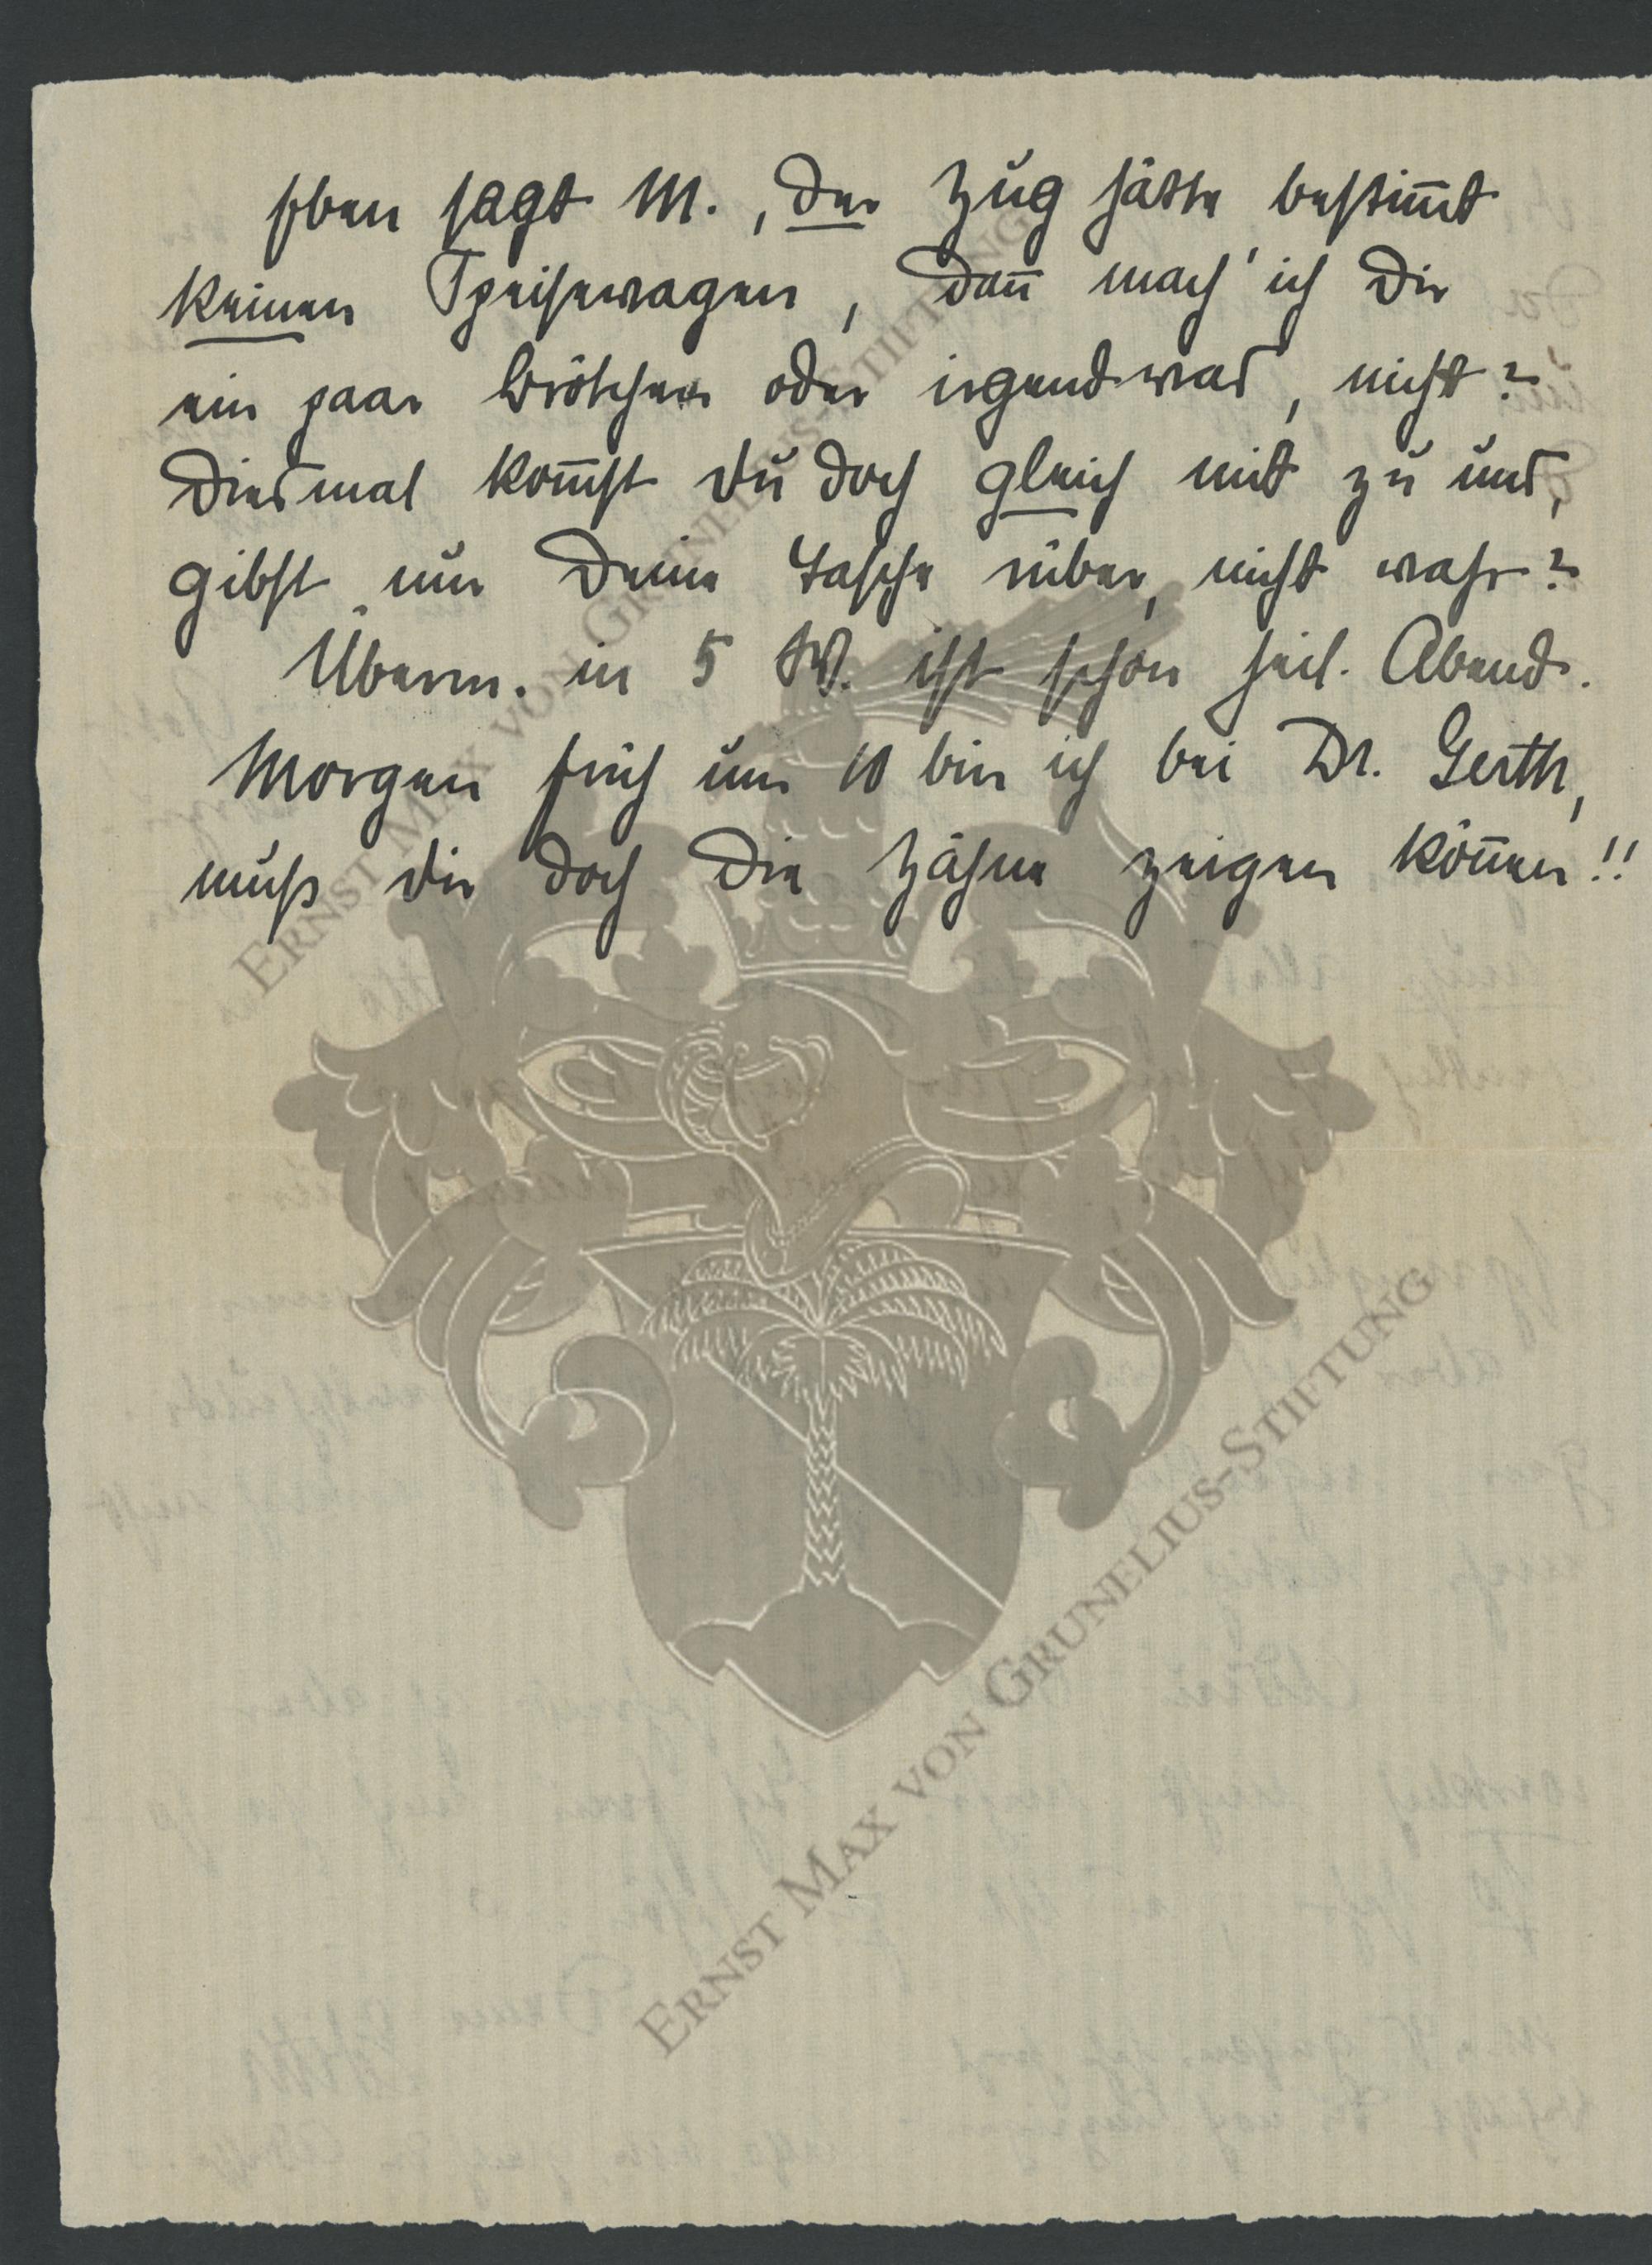 Eben sagt M., der Zug hätte bestim̄t
keinen Speisewagen, dan̄ mach' ich Dir
ein paar Brötchen oder irgendwas, nicht?
Diesmal kom̄st Du doch gleich mit zu uns,
gibst nur Deine Tasche rüber, nicht wahr?
Überm. in 5 W. ist schon heil. Abend.
Morgen früh um 10 bin ich bei Dr. Gerth,
muß dir doch die Zähne zeigen kön̄en!!
ERNST MAX VON GRUNELIUS-STIFTUNG
ERNST MAX VON GRUNELIUS-STIFTUNG